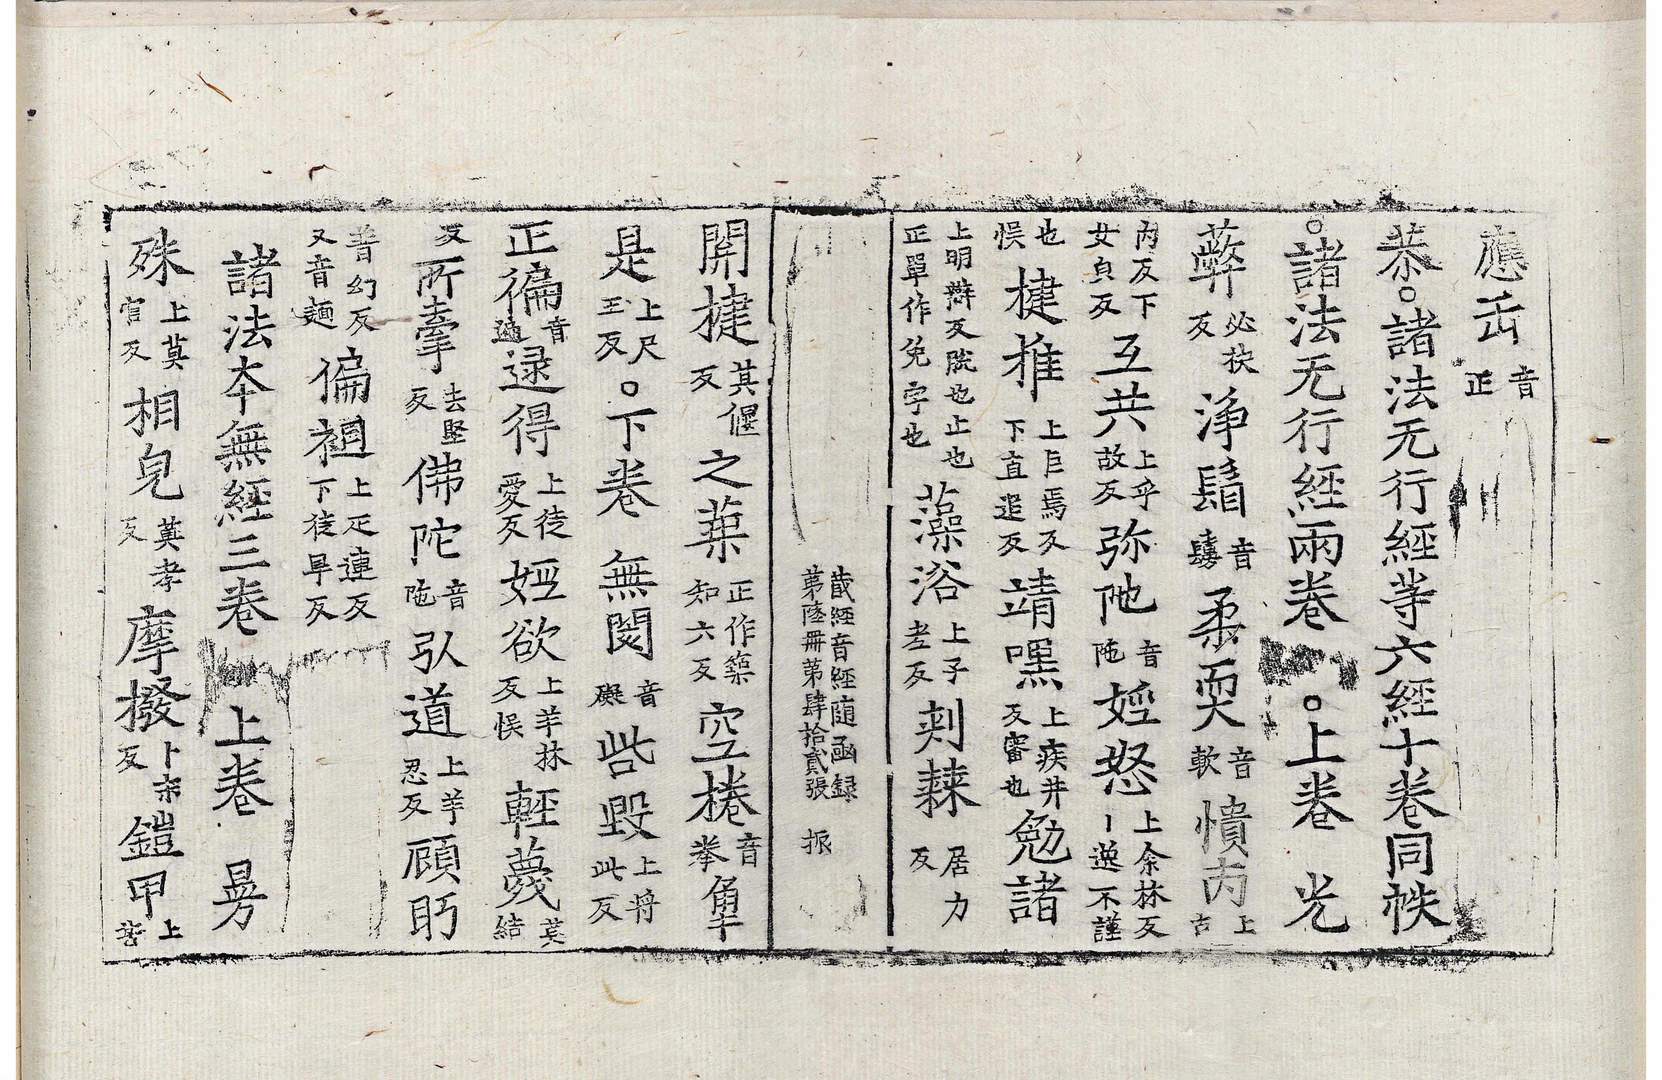 應㱏音正
恭。諸法无行經等六經十卷同帙
。諸法无行經兩卷。上卷 光
弊必袂反淨鬚音鬚柔耎音軟憒丙上古
內反下女皃反互共上乎故反弥阤音陁婬怒上余林反丨逆不謹
也悮揵椎上巨焉反下直追反靖嘿上疾井反審也勉諸
上明辯反脫也止也正單作免字也藻浴上子老反刾蕀居力反
藏經音經随函録
第陸冊第肆拾貳張 振
開揵其偃反之䒳正作築知六反空捲音拳㲉
是上尺至反。下卷 無閡音礙呰毀上將此反
正徧音遍逮得上徒愛反婬欲上羊林反悮輕蔑莫結
反所牽去堅反佛陀音陁弘道上羊忍反顧眄
普幻反又音麵偏袒上疋連反下徒旱反
諸法夲無經三卷 上卷 昮
殊上莫官反相皃莫孝反摩撥卜末反鎧甲上苦